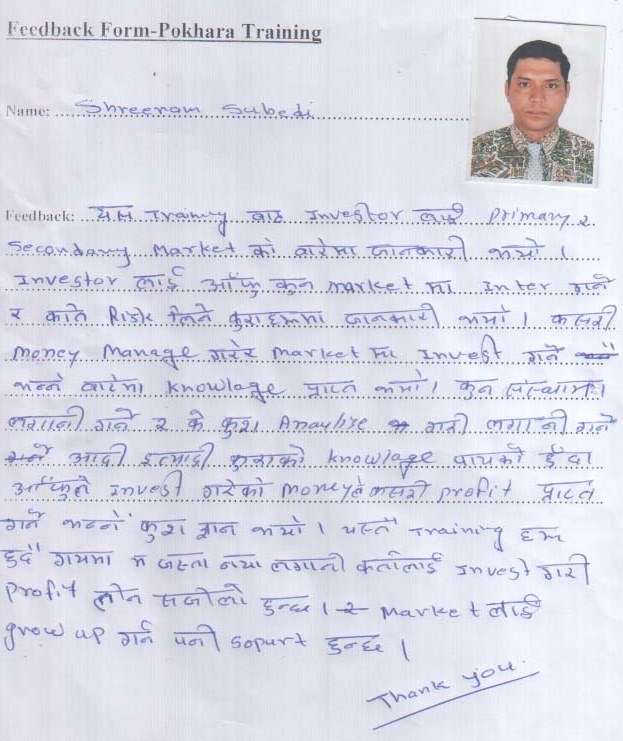 Feedback Form-Pokhara Training
Name: Shreeram Subedi
Feedback: यस Training बाट Investor लाई Primary र
Secondary Market को बारेमा जानकारी भयो ।
Investor लाई आँफु कुन market मा Inter गर्ने
र कति Risk लिने कुराहरुमा जानकारी भयो । कसरी
money Manage गरेर market मा Invest गर्ने
भन्ने बारेमा knowlage प्राप्त भयो । कुन संस्थामा
लगानी गर्ने र के कुरा Anaylise गरी लगानी गर्ने
आदी इत्यादी कुराको knowlage पायको हुँदा
आँफुले Invest गरेको money ले कसरी profit प्राप्त
गर्ने भन्ने कुरा ज्ञान भयो । यस्तै Training हरु
हुदै गयमा म जस्ता नया लगानी कर्तालाई Invest गरी
Profit लीन सजीलो हुन्छ । र Market लाई
grow up गर्न पनी sopurt हुन्छ ।
Thank you.